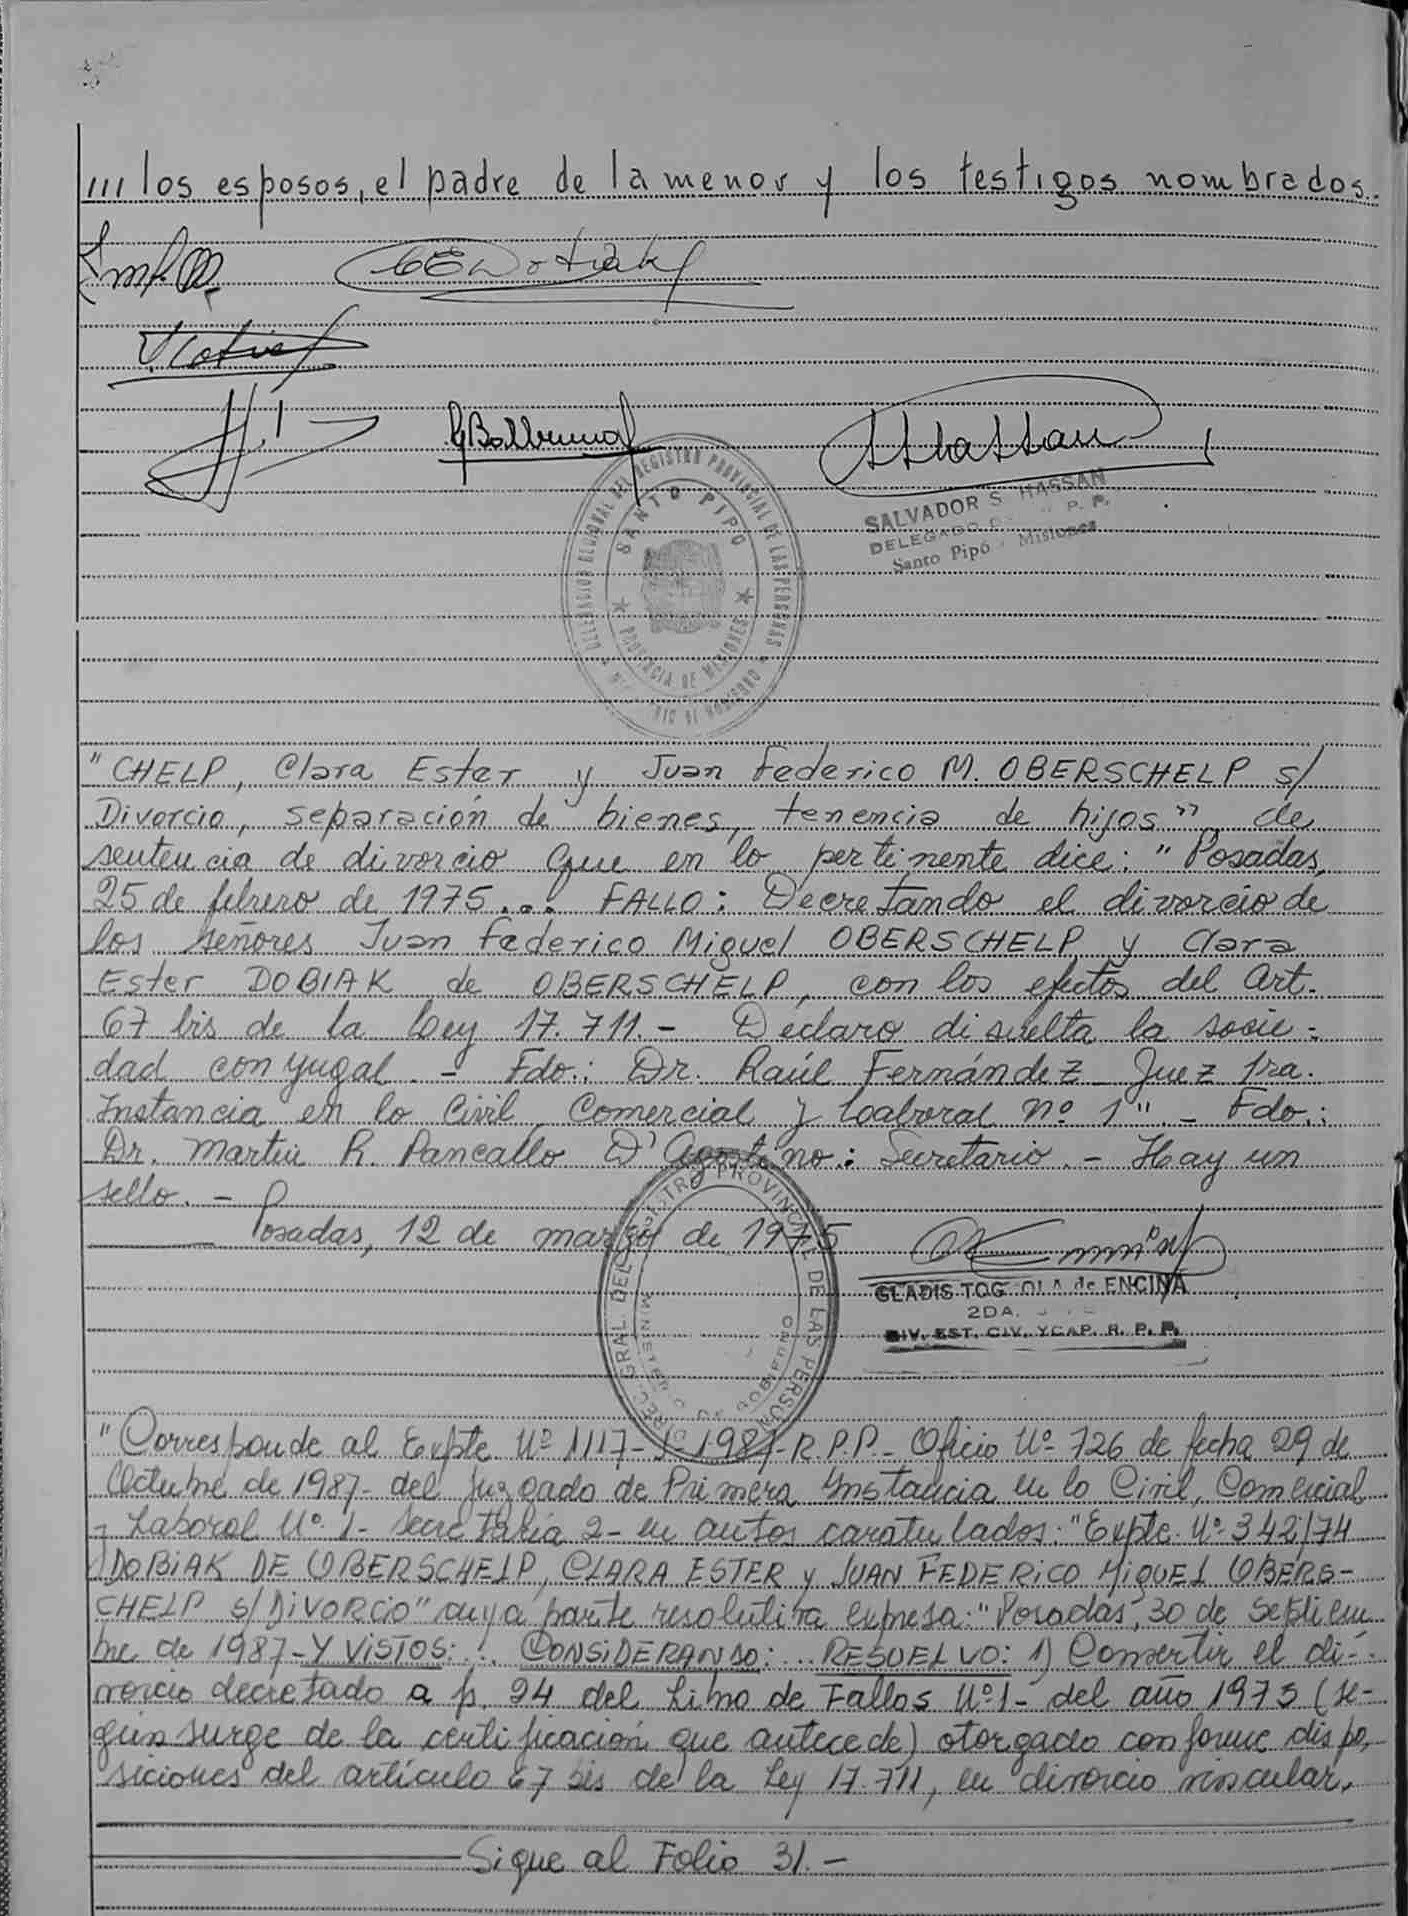 /// los esposos, el padre de la menor y los testigos nombrados.-
SANTO PIPO
PROVINCIA DE MISIONES
SALVADOR S. HASSAN
DELEGADO P. P.
Santo Pipó - Misiones
"CHELP, Clara Ester y Juan Federico M. OBERSCHELP s/
Divorcio, separación de bienes, tenencia de hijos" de
sentencia de divorcio que en lo pertinente dice: "Posadas,
25 de febrero de 1975... FALLO: Decretando el divorcio de
los señores Juan Federico Miguel OBERSCHELP y Clara
Ester DOBIAK de OBERSCHELP, con los efectos del Art.
67 bis de la Ley 17.711.- Declaro disuelta la socie-
dad conyugal.- Fdo.: Dr. Raúl Fernández Juez 1ra.
Instancia en lo Civil, Comercial y Laboral nº 1".- Fdo.:
Dr. Martín R. Pancallo D'Agostino: Secretario.- Hay un
sello.-
Posadas, 12 de marzo de 1975
GLADIS de ENCINA
2DA.
DIV. EST. CIV. Y CAP. R. P. P.
"Corresponde al Expte. Nº 1117-J-1987-R.P.P.- Oficio Nº 726 de fecha 29 de
Octubre de 1987- del Juzgado de Primera Instancia en lo Civil, Comercial
y Laboral Nº 1- Secretaría 2- en autos caratulados: "Expte. Nº 342/74
DOBIAK DE OBERSCHELP, CLARA ESTER y JUAN FEDERICO MIGUEL OBERS-
CHELP s/DIVORCIO" cuya parte resolutiva expresa: "Posadas, 30 de Septiem-
bre de 1987- Y VISTOS: ... CONSIDERANDO: ... RESUELVO: 1) Convertir el di-
vorcio decretado a f. 24 del Libro de Fallos Nº 1- del año 1975 (se-
gún surge de la certificación que antecede) otorgado conforme dispo-
siciones del artículo 67 bis de la Ley 17.711, en divorcio vincular,
Sigue al Folio 31.-